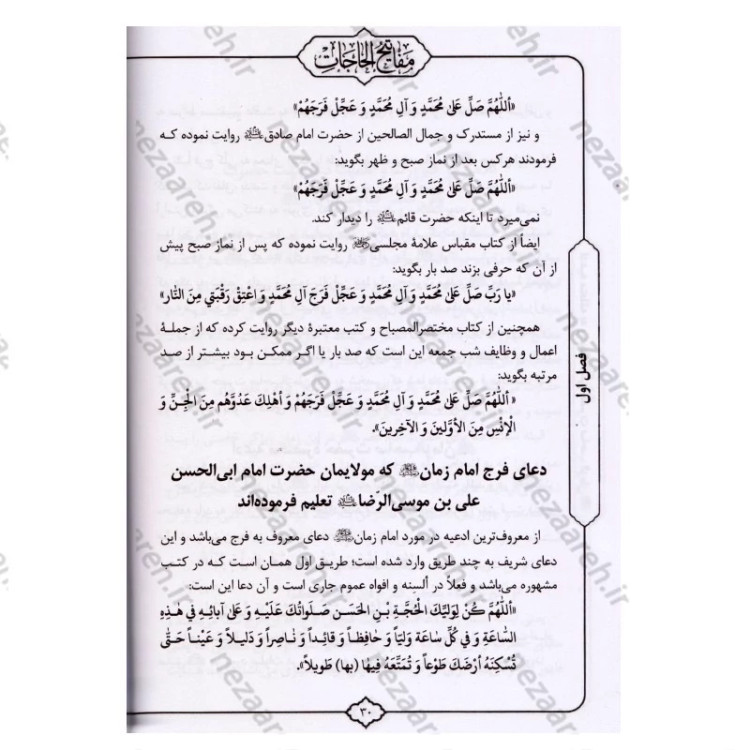 مفاتیح الحاجات
«اَللّٰهُمَّ صَلِّ عَلیٰ مُحَمَّدٍ وَ آلِ مُحَمَّدٍ وَ عَجِّلْ فَرَجَهُمْ»
و نیز از مستدرک و جمال الصالحین از حضرت امام صادق روایت نموده که
فرمودند هرکس بعد از نماز صبح و ظهر بگوید:
«اَللّٰهُمَّ صَلِّ عَلیٰ مُحَمَّدٍ وَ آلِ مُحَمَّدٍ وَ عَجِّلْ فَرَجَهُمْ»
نمی‌میرد تا اینکه حضرت قائم را دیدار کند.
ایضاً از کتاب مقباس علامهٔ مجلسی روایت نموده که پس از نماز صبح پیش
از آن که حرفی بزند صد بار بگوید:
«یا رَبِّ صَلِّ عَلیٰ مُحَمَّدٍ وَ آلِ مُحَمَّدٍ وَ عَجِّلْ فَرَجَ آلِ مُحَمَّدٍ وَ اعْتِقْ رَقَبَتي مِنَ النّار»
همچنین از کتاب مختصرالمصباح و کتب معتبرهٔ دیگر روایت کرده که از جملهٔ
اعمال و وظایف شب جمعه این است که صد بار یا اگر ممکن بود بیشتر از صد
مرتبه بگوید:
« اَللّٰهُمَّ صَلِّ عَلیٰ مُحَمَّدٍ وَ آلِ مُحَمَّدٍ وَ عَجِّلْ فَرَجَهُمْ وَ أَهْلِكْ عَدُوَّهُم مِنَ الْجِنِّ وَ
الْإِنْسِ مِنَ الأَوَّلینَ وَ الآخِرینَ».
دعای فرج امام زمان که مولایمان حضرت امام ابی‌الحسن
علی بن موسی‌الرّضا تعلیم فرموده‌اند
از معروف‌ترین ادعیه در مورد امام زمان دعای معروف به فرج می‌باشد و این
دعای شریف به چند طریق وارد شده است؛ طریق اول همان است که در کتب
مشهوره می‌باشد و فعلاً در ألسِنه و افواه عموم جاری است و آن دعا این است:
«اَللّٰهُمَّ كُنْ لِوَلِيِّكَ الْحُجَّةِ بْنِ الحَسَن صَلَواتُكَ عَلَيْهِ وَ عَلیٰ آبائِهِ في هٰذِهِ
السّاعَةِ وَ في كُلِّ ساعَة وَلِيّاً وَ حٰافِظاً وَ قائِداً وَ ناصِراً وَ دَليلاً وَ عَيْناً حَتّیٰ
تُسْكِنَهُ أَرْضَكَ طَوْعاً وَ تُمَتِّعَهُ فيهٰا (بها) طَويلاً».
فصل اول
۳۰
nezaareh.ir
nezaareh.ir
nezaareh.ir
nezaareh.ir